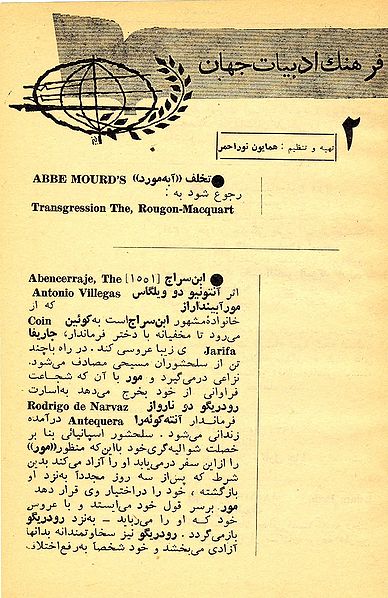 فرهنگ ادبیات جهان
۲
تهیه و تنظیم : همایون نوراحمر
ABBE MOURD'S تخلف ((آبه مورد))
رجوع شود به :
Transgression The, Rougon-Macquart
Abencerraje, The [۱۵۵۱] ابن سراج
اثر آنتونیو دو ویلگاس Antonio Villegas
مورآبینداراز که از
خانوادهٔ مشهور ابن‌سراج است به کوئین Coin
می‌رود تا مخفیانه با دختر فرماندار، جاریفا
Jarifa ی زیبا عروسی کند. در راه باچند
تن از سلحشوران مسیحی مصادف می‌شود.
نزاعی درمی‌گیرد و مور با آن که شجاعت
فراوانی از خود بخرج می‌دهد به‌اسارت
رودریگو دو نارواز Rodrigo de Narvaz
فرماندار آنته‌کوئه‌را Antequera درآمده
زندانی می‌شود. سلحشور اسپانیائی بنا بر
خصلت شوالیه‌گری خود بااین‌که منظور((مور))
را ازاین سفر درمی‌یابد او را آزاد می‌کند بدین
شرط که پس‌از سه روز مجدداً به‌نزد او
بازگشته ، خود را دراختیار وی قرار دهد
مور برسر قول خود می‌ایستد و با عروس
خود که او را می‌رباید – به‌نزد رودریگو
بازمی‌گردد. رودریگو نیز سخاوتمندانه بدانها
آزادی می‌بخشد و خود شخصاً به‌رفع‌اختلاف